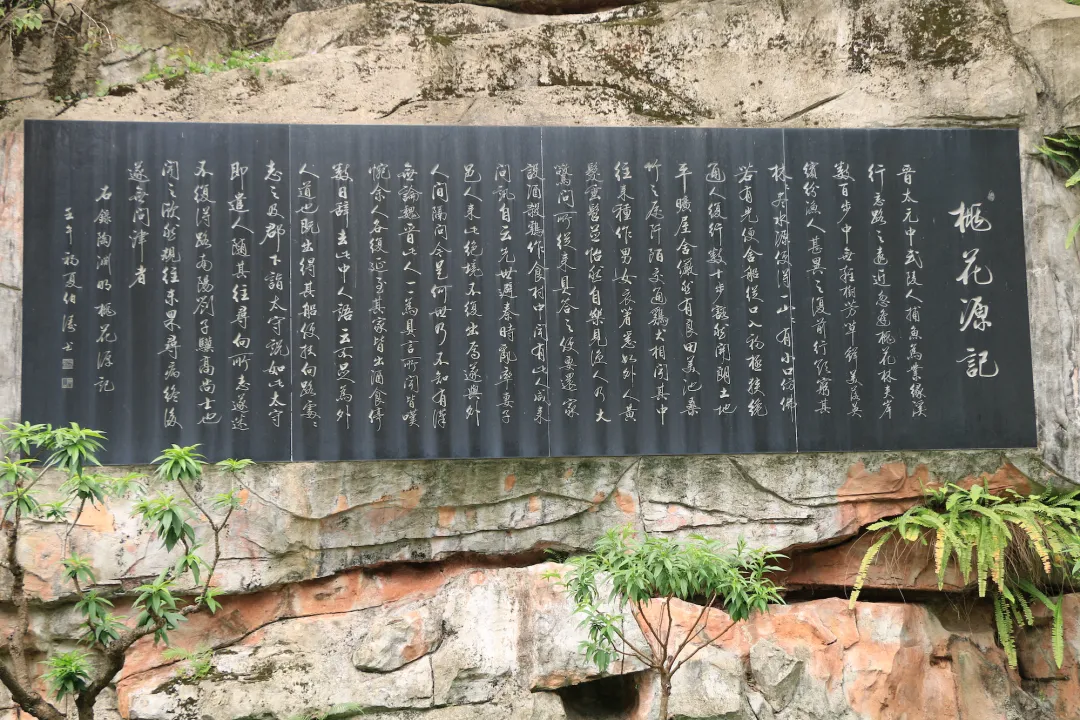 桃花源記
晉太元中武陵人捕魚為業緣溪
行忘路之遠近忽逢桃花林夾岸
數百步中無雜樹芳草鮮美落英
繽紛漁人甚異之復前行欲窮其
林林盡水源便得一山山有小口彷彿
若有光便舍船從口入初極狹纔
通人復行數十步豁然開朗土地
平曠屋舍儼然有良田美池桑
竹之屬阡陌交通鷄犬相聞其中
往來種作男女衣著悉如外人黃
髮垂髫並怡然自樂見漁人乃大
驚問所從來具答之便要還家
設酒殺鷄作食村中聞有此人咸來
問訊自云先世避秦時亂率妻子
邑人來此絕境不復出焉遂與外
人間隔問今是何世乃不知有漢
無論魏晉此人一一為具言所聞皆嘆
惋余人各復延至其家皆出酒食停
數日辭去此中人語云不足為外
人道也既出得其船便扶向路處處
志之及郡下詣太守說如此太守
即遣人隨其往尋向所志遂迷
不復得路南陽劉子驥高尚士也
聞之欣然規往未果尋病終後
遂無問津者
右錄陶淵明桃花源記
壬午初夏伯